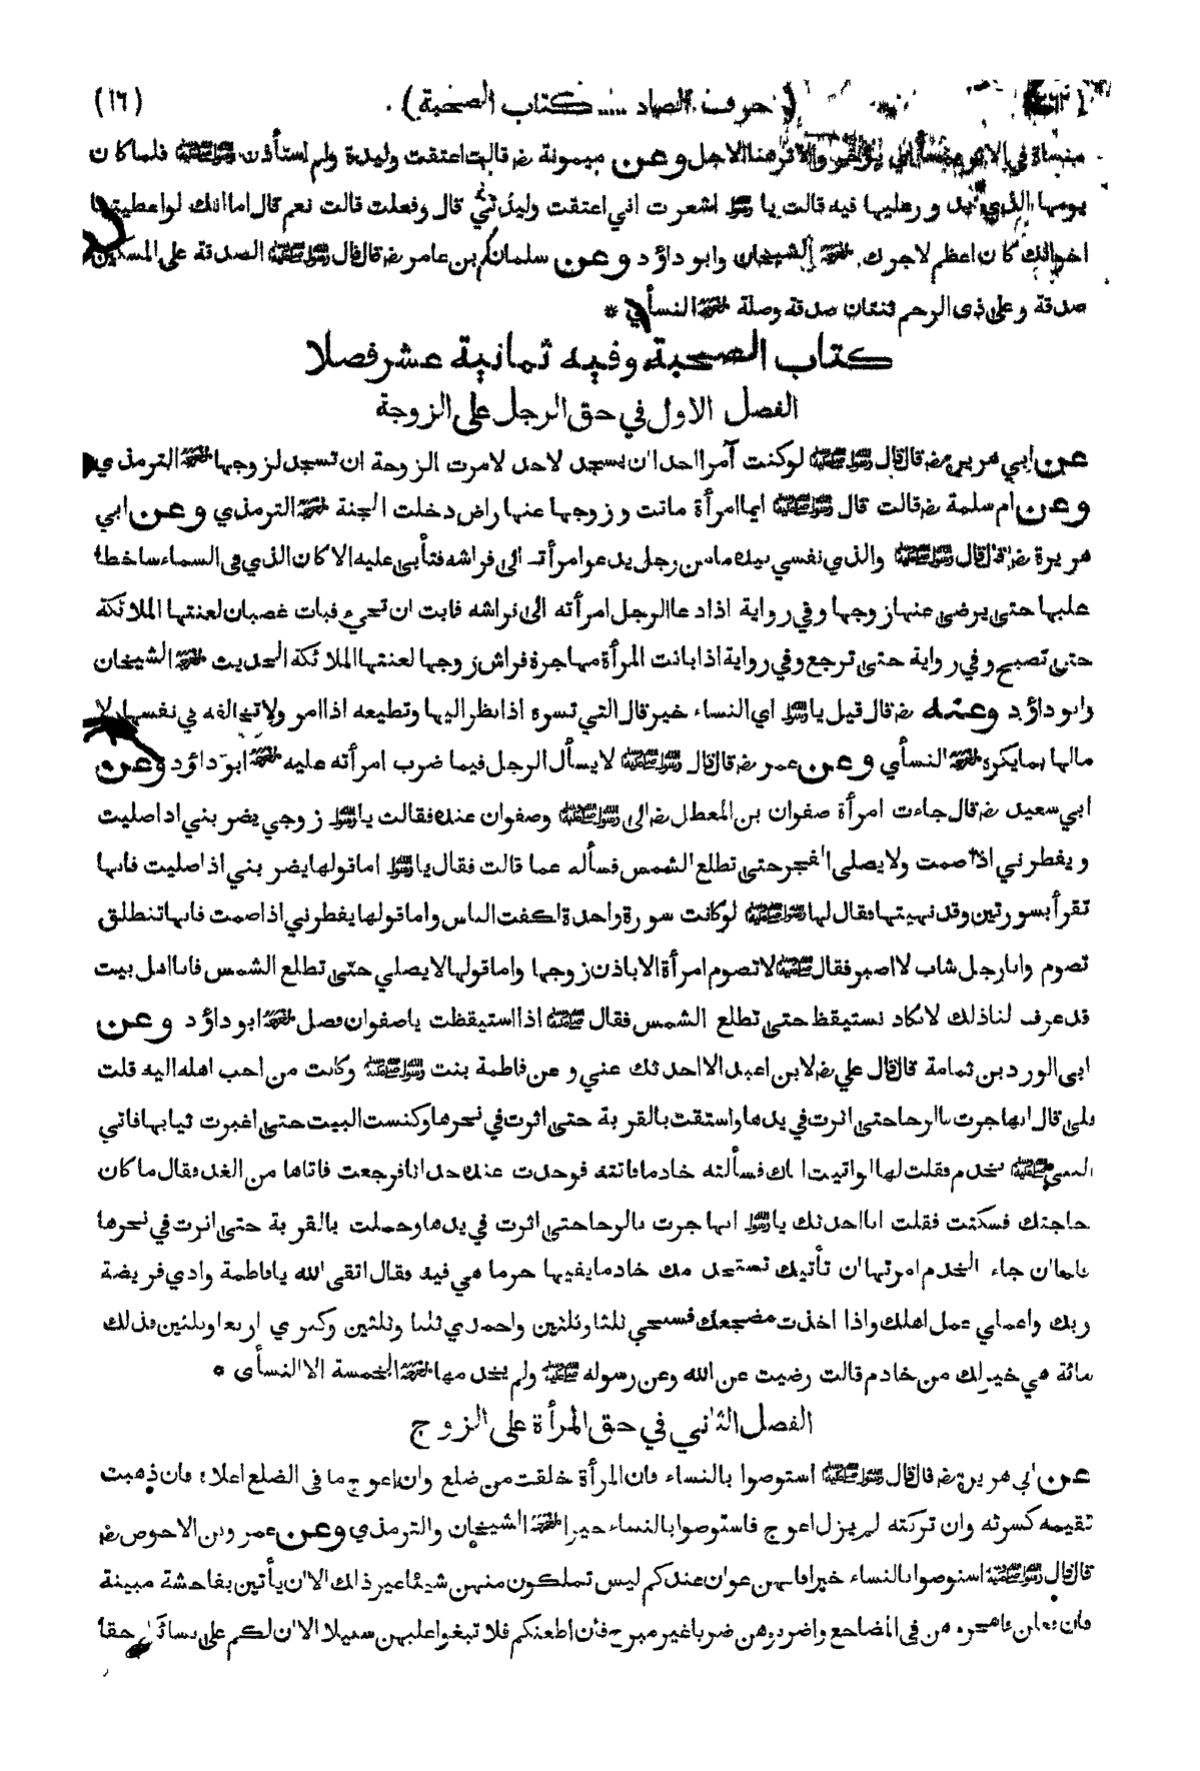 (حرف الصاد ..... كتاب الصحبة) . (١٦)
منساة في الاثر هنا الاجل وعن ميمونة رض قالت اعتقت وليدة ولم استأذن رسول الله ﷺ فلما كان
يومها الذي يد و رعليها فيه قالت يا رسول الله اشعرت اني اعتقت وليدتي قال وفعلت قالت نعم قال اما انك لو اعطيتها
اخوالك كان اعظم لاجرك. اخرجه الشيخان وابو داؤد وعن سلمان بن عامر رض قال قال رسول الله ﷺ الصدقة على المسكين
صدقة وعلى ذى الرحم ثنتان صدقة وصلة اخرجه النسأي *
كتاب الصحبة وفيه ثمانية عشر فصلا
الفصل الاول في حق الرجل على الزوجة
عن ابي هريرة رض قال قال رسول الله ﷺ لو كنت آمرا احدا ان يسجد لاحد لامرت الزوجة ان تسجد لزوجها اخرجه الترمذي
وعن ام سلمة رض قالت قال رسول الله ﷺ ايما امرأة ماتت وزوجها عنها راض دخلت الجنة اخرجه الترمذي وعن ابي
هريرة رض قال قال رسول الله ﷺ والذي نفسي بيده ما من رجل يدعو امرأته الى فراشه فتأبى عليه الا كان الذي في السماء ساخطا
عليها حتى يرضى عنها زوجها وفي رواية اذا دعا الرجل امرأته الى فراشه فابت ان تجيء فبات غضبان لعنتها الملائكة
حتى تصبح وفي رواية حتى ترجع وفي رواية اذا باتت المرأة مهاجرة فراش زوجها لعنتها الملائكة الحديث اخرجه الشيخان
وابو داؤد وعنه رض قال قيل يا رسول الله اي النساء خير قال التي تسره اذا نظر اليها وتطيعه اذا امر ولا تخالفه في نفسها ولا
مالها بما يكره اخرجه النسأي وعن عمر رض قال قال رسول الله ﷺ لا يسأل الرجل فيما ضرب امرأته عليه اخرجه ابو داؤد وعن
ابي سعيد رض قال جاءت امرأة صفوان بن المعطل رض الى رسول الله ﷺ وصفوان عنده فقالت يا رسول الله زوجي يضربني اذا صليت
ويفطرني اذا صمت ولا يصلى الفجر حتى تطلع الشمس فسأله عما قالت فقال يا رسول الله اما قولها يضربني اذا صليت فانها
تقرأ بسورتين وقد نهيتها فقال لها رسول الله ﷺ لو كانت سورة واحدة لكفت الناس واما قولها يفطرني اذا صمت فانها تنطلق
تصوم وانا رجل شاب لا اصبر فقال ﷺ لا تصوم امرأة الا باذن زوجها واما قولها لا يصلي حتى تطلع الشمس فانا اهل بيت
قد عرف لنا ذلك لا نكاد نستيقظ حتى تطلع الشمس فقال ﷺ اذا استيقظت يا صفوان فصل اخرجه ابو داؤد وعن
ابى الورد بن ثمامة قال قال علي رض لابن اعبد الا احدثك عني وعن فاطمة بنت رسول الله ﷺ وكانت من احب اهله اليه قلت
بلى قال انها جرت بالرحا حتى اثرت في يدها واستقت بالقربة حتى اثرت في نحرها وكنست البيت حتى اغبرت ثيابها فاتي
النبي ﷺ بخدم فقلت لها لو اتيت اباك فسألته خادما فاتته فوجدت عنده حداثا فرجعت فاتاها من الغد فقال ما كان
حاجتك فسكتت فقلت انا احدثك يا رسول الله انها جرت بالرحا حتى اثرت في يدها وحملت بالقربة حتى اثرت في نحرها
فلما ان جاء الخدم امرتها ان تأتيك تستخدمك خادما يقيها حر ما هي فيه فقال اتقى الله يا فاطمة وادي فريضة
ربك واعملي عمل اهلك واذا اخذت مضجعك فسبحي ثلثا وثلثين واحمدي ثلثا وثلثين وكبري اربعا وثلثين فذلك
مائة هي خير لك من خادم قالت رضيت عن الله وعن رسوله ﷺ ولم يخدمها اخرجه الخمسة الا النسأى *
الفصل الثاني في حق المرأة على الزوج
عن ابي هريرة رض قال قال رسول الله ﷺ استوصوا بالنساء فان المرأة خلقت من ضلع وان اعوج ما في الضلع اعلاه فان ذهبت
تقيمه كسرته وان تركته لم يزل اعوج فاستوصوا بالنساء خيرا اخرجه الشيخان والترمذي وعن عمرو بن الاحوص رض
قال قال رسول الله ﷺ استوصوا بالنساء خيرا فانهن عوان عندكم ليس تملكون منهن شيئا غير ذلك الا ان يأتين بفاحشة مبينة
فان فعلن فاهجروهن في المضاجع واضربوهن ضربا غير مبرح فان اطعنكم فلا تبغوا عليهن سبيلا الا ان لكم على نسائكم حقا